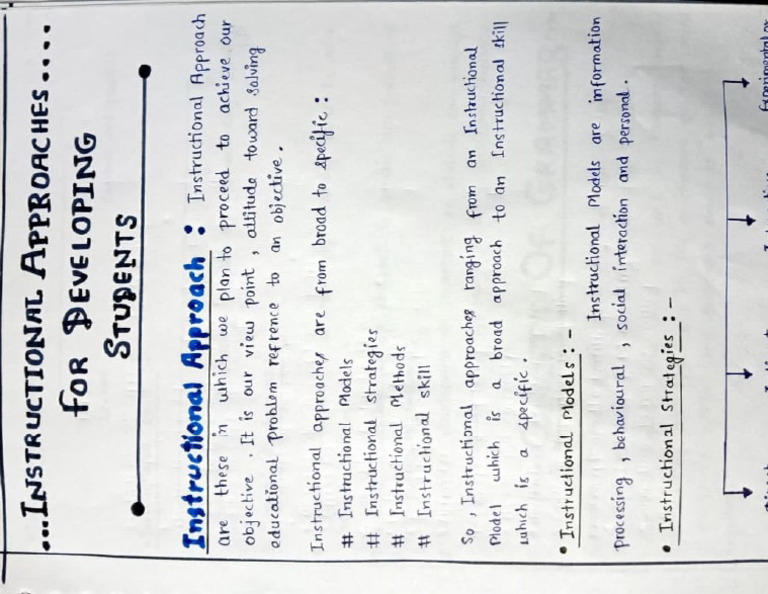 ...INSTRUCTIONAL APPROACHES....
FOR DEVELOPING
STUDENTS
Instructional Approach : Instructional Approach
are those in which we plan to proceed to achieve our
objective . It is our view point , attitude toward solving
educational problem refrence to an objective .
Instructional approaches are from broad to specific :
# Instructional Models
# Instructional strategies
# Instructional Methods
# Instructional skill
So , Instructional approaches ranging from an Instructional
Model which is a broad approach to an Instructional skill
which is a specific .
• Instructional Models : -
Instructional Models are information
processing , behavioural , social interaction and personal .
• Instructional Strategies : -